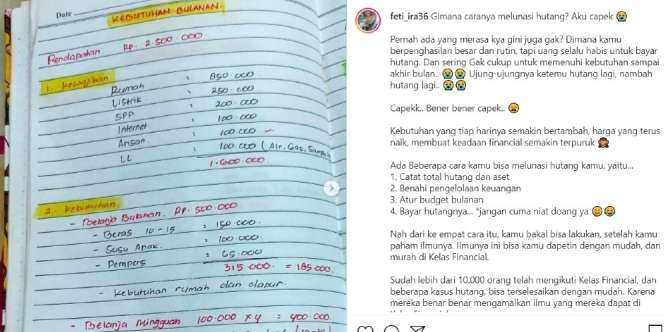 Date
KEBUTUHAN BULANAN.
Pendapatan Rp. 2.500 000
1. Kewajiban
Rumah : 850 000
Listrik : 250.000
SPP : 200.000
Internet : 100 000
Arisan : 100.000
LL : 100 000 (Air, Gas,
1.600.000
2. Kebutuhan
- Belanja Bulanan. Rp. 500.000
- Beras 10 - 15 = 150.000.
- Susu Anak : 100.000.
- Pempers : 65.000
315.000. = 185.000.
- kebutuhan rumah dan dapur.
- Belanja Mingguan 100.000 x 4 = 400.000
feti_ira36 Gimana caranya melunasi hutang? Aku capek 😭
Pernah ada yang merasa kya gini juga gak? Dimana kamu
berpenghasilan besar dan rutin, tapi uang selalu habis untuk bayar
hutang. Dan sering Gak cukup untuk memenuhi kebutuhan sampai
akhir bulan.. 😭😭 Ujung-ujungnya ketemu hutang lagi, nambah
hutang lagi.. 😭😭
Capekk.. Bener bener capek.. 😫
Kebutuhan yang tiap harinya semakin bertambah, harga yang terus
naik, membuat keadaan financial semakin terpuruk 🤦
Ada Beberapa cara kamu bisa melunasi hutang kamu, yaitu...
1. Catat total hutang dan aset
2. Benahi pengelolaan keuangan
3. Atur budget bulanan
4. Bayar hutangnya... *jangan cuma niat doang ya 😊😂
Nah dari ke empat cara itu, kamu bakal bisa lakukan, setelah kamu
paham ilmunya. Ilmunya ini bisa kamu dapetin dengan mudah, dan
murah di Kelas Financial.
Sudah lebih dari 10.000 orang telah mengikuti Kelas Financial, dan
beberapa kasus hutang, bisa terselesaikan dengan mudah. Karena
mereka benar benar mengamalkan ilmu yang mereka dapat di